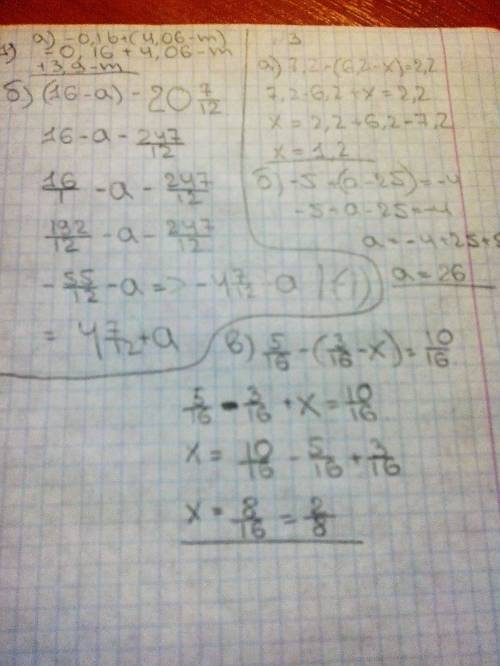 а) -0,16+(4,06-m)
-0,16+4,06-m
+3,9-m
б) (16-a) - 20 7/12
16-a - 247/12
16/1 - a - 247/12
192/12 - a - 247/12
- 55/12 - a => - 4 7/12 - a | (-1)
= 4 7/12 + a
3
а) 7,2-(6,2-x)=2,2
7,2-6,2+x=2,2
x=2,2+6,2-7,2
x=1,2
б) -5+(a-25)=-4
-5+a-25=-4
a=-4+25+5
a=26
в) 5/16 - (3/16 - x) = 10/16
5/16 - 3/16 + x = 10/16
x = 10/16 - 5/16 + 3/16
x = 8/16 = 2/8